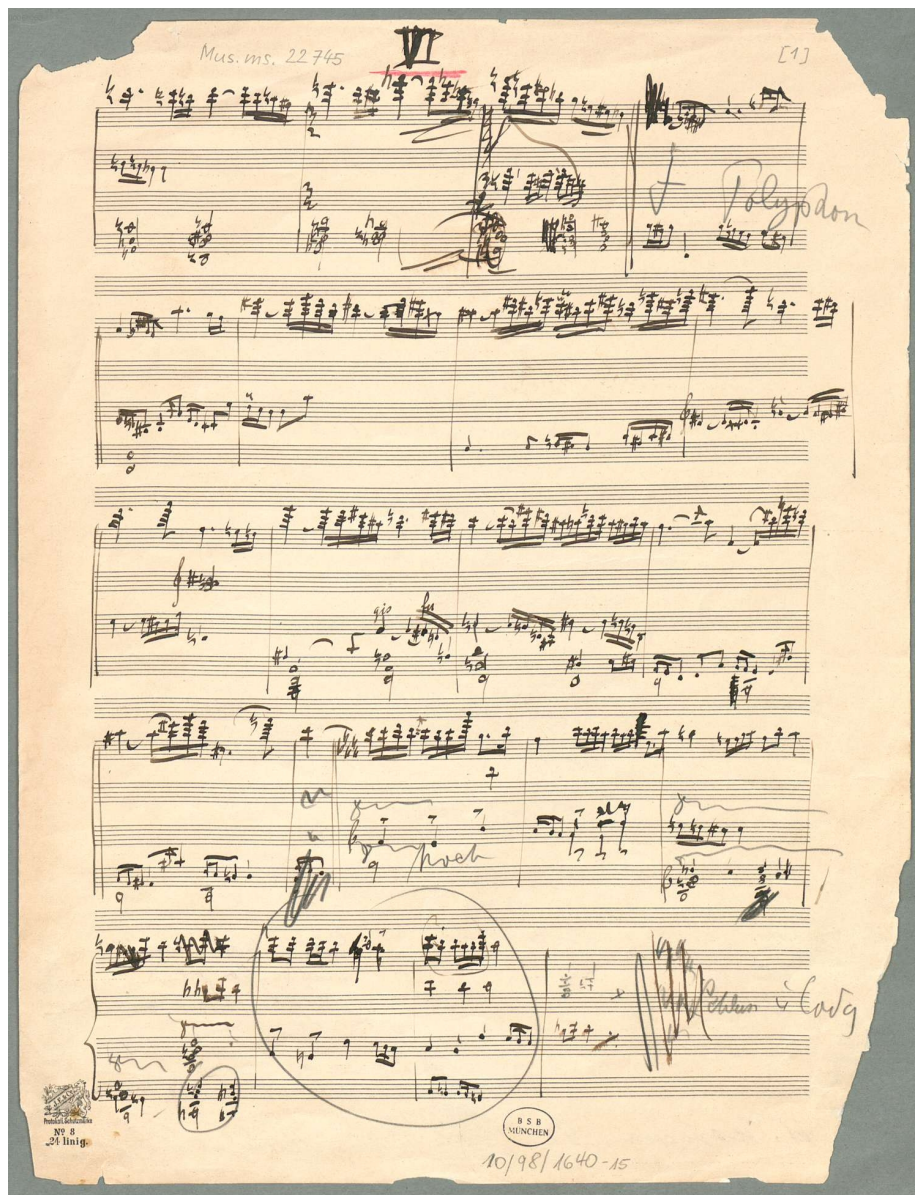 Mus.ms. 22745
VI
[1]
Polyphon
gis
hoch
Schluss ü Coda
Protokoll. Schutzmarke
No 8
24 linig.
BSB
MÜNCHEN
10/98/1640-15